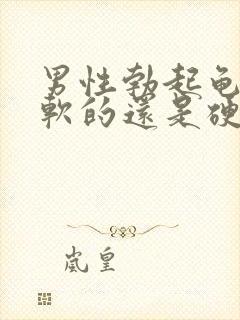 男性勃起龟
軟的還是硬
嵐皇